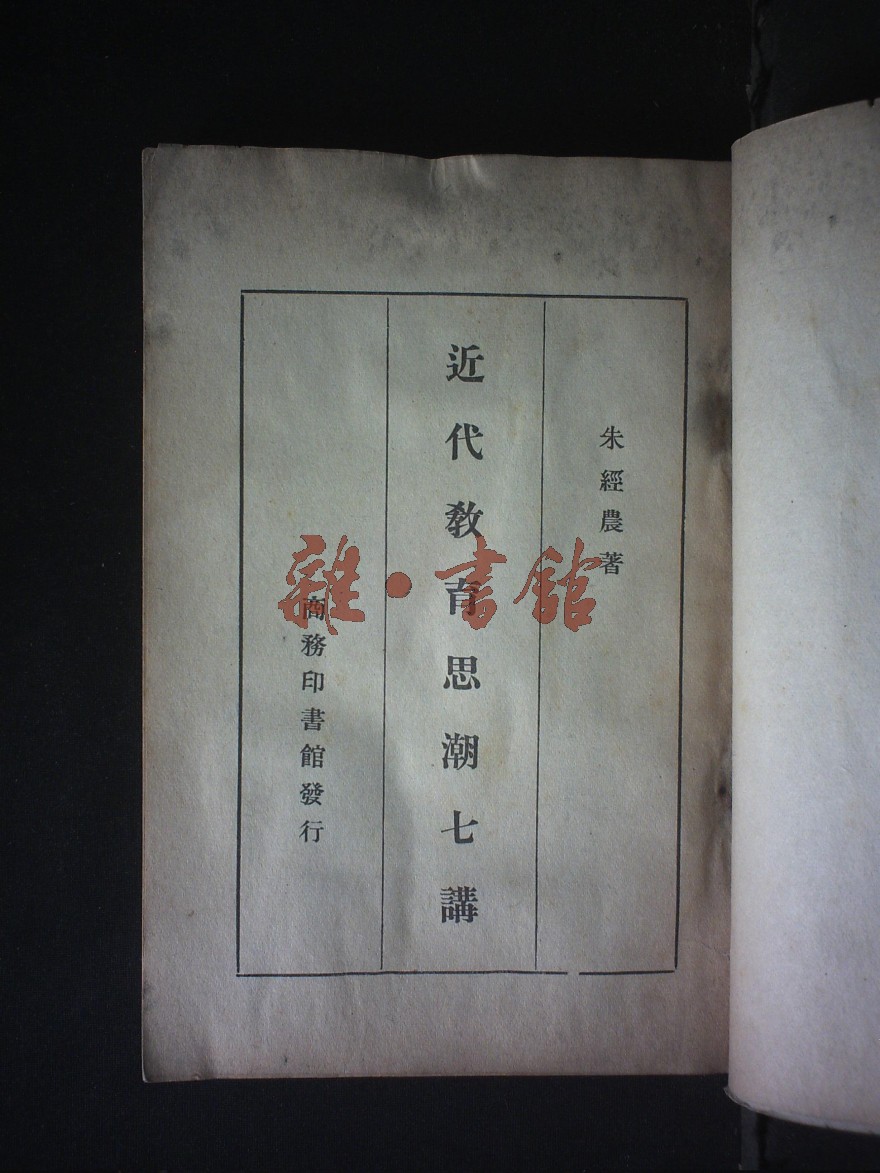 朱經農著
近代教育思潮七講
商務印書館發行
雜·書館